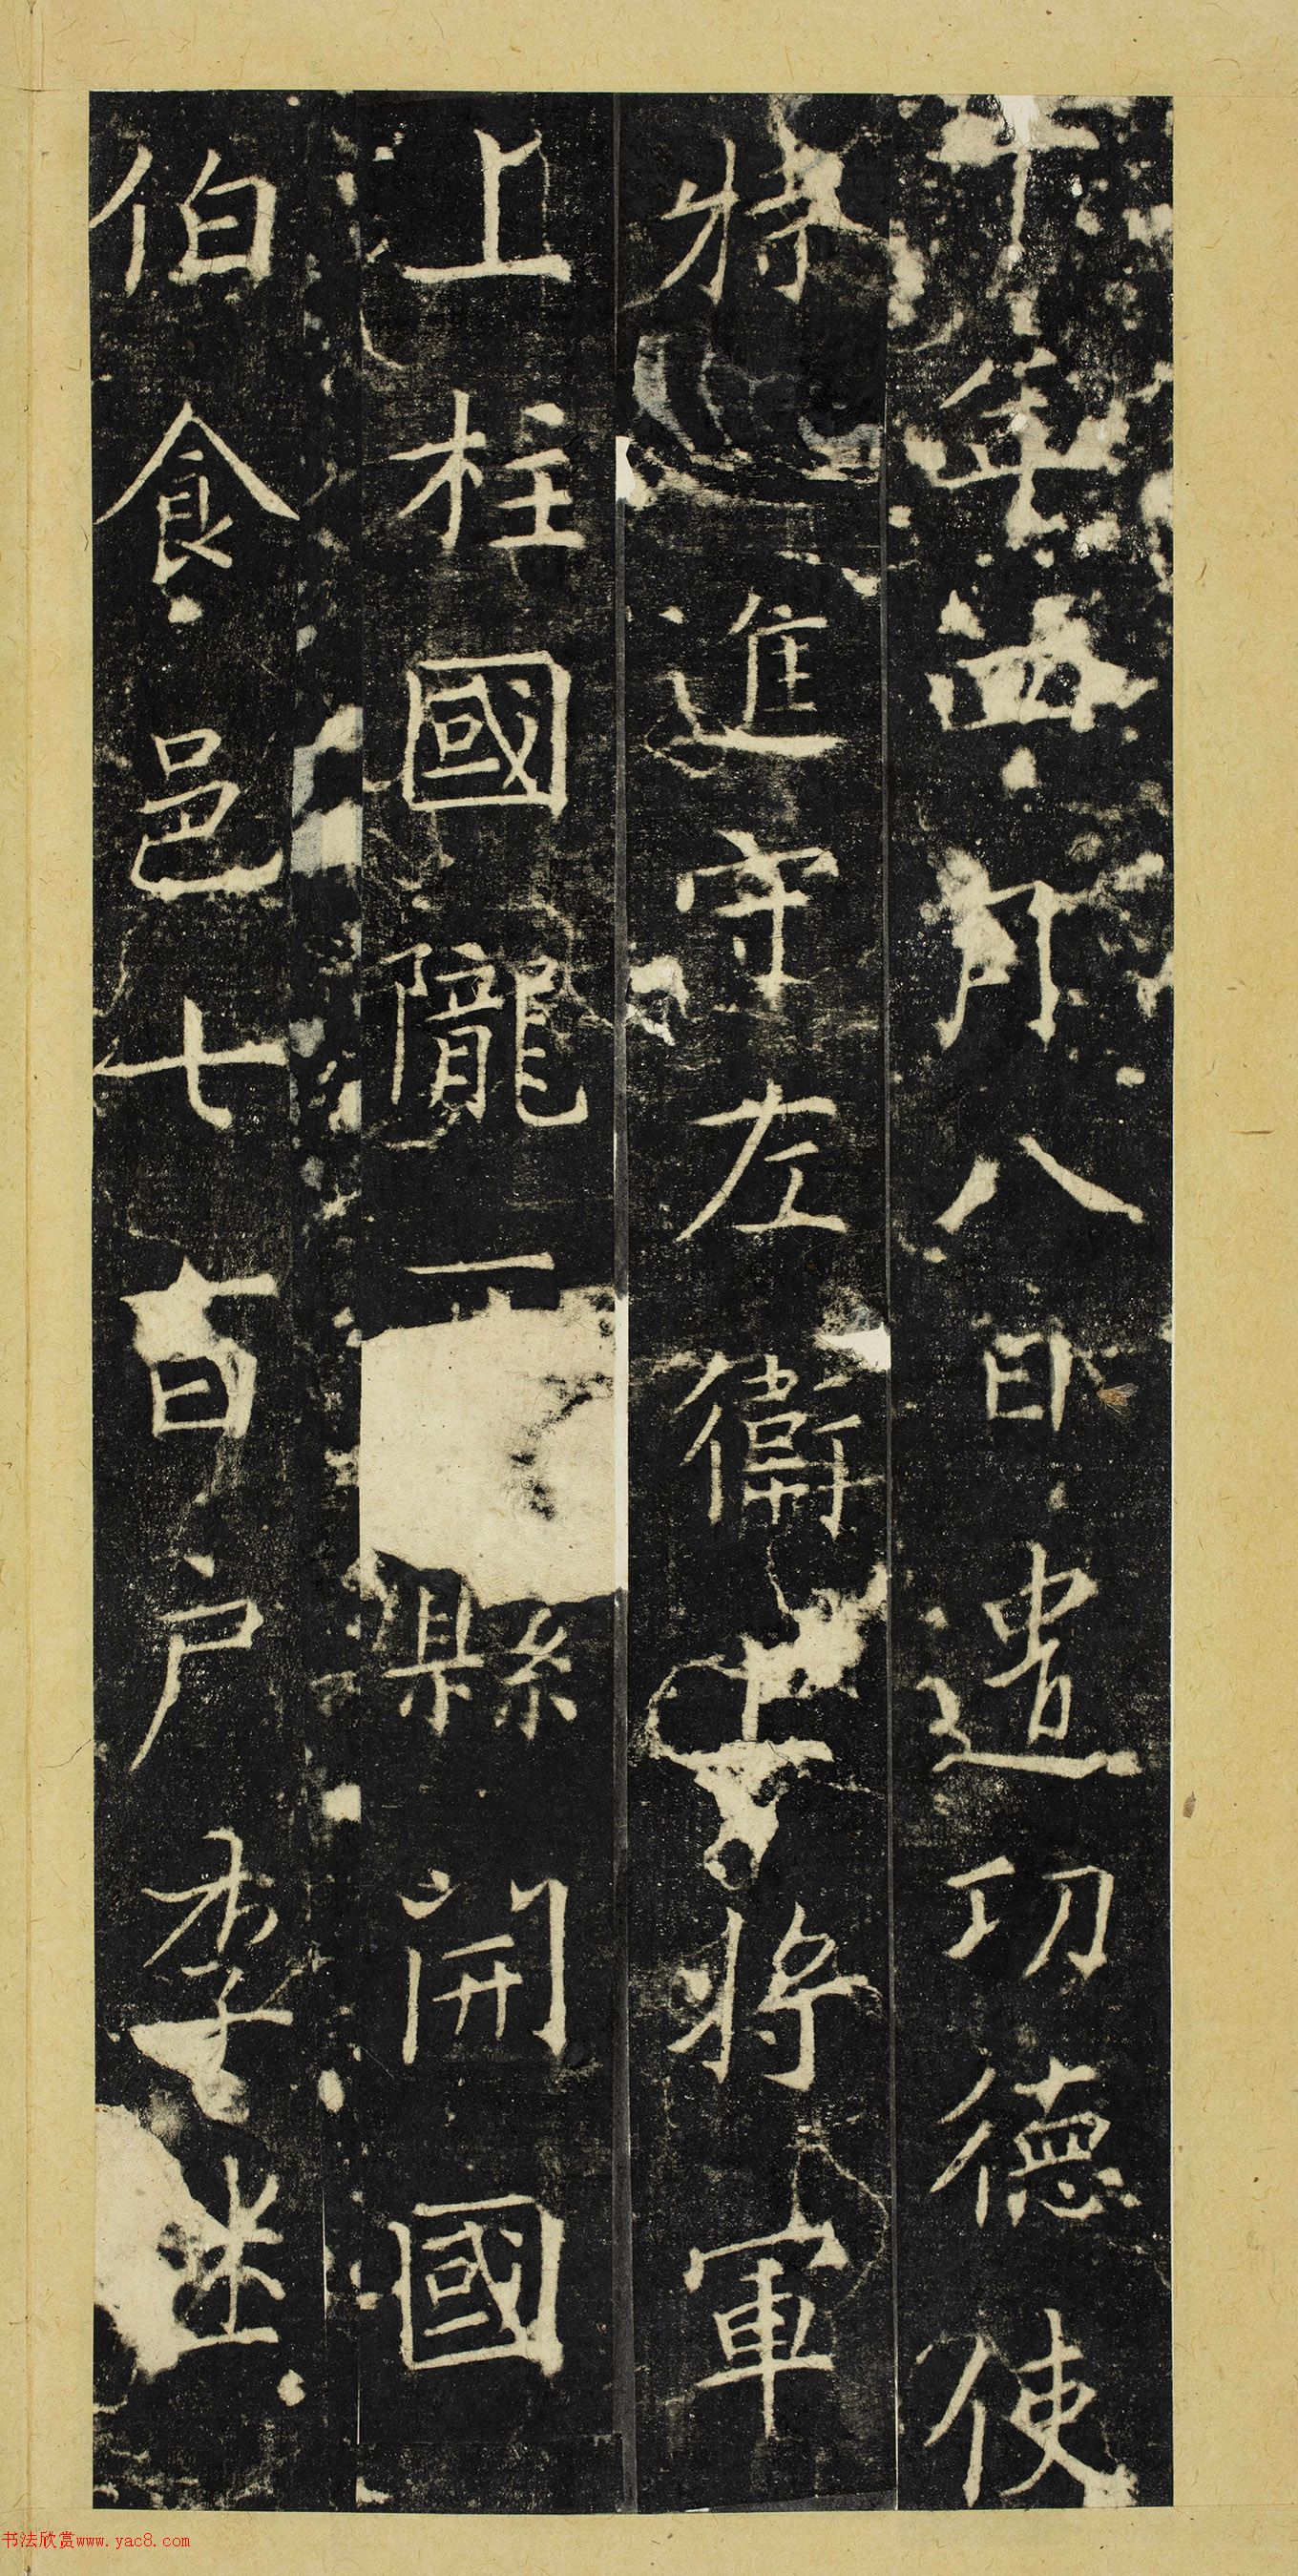 十年四月八日遣功德使
特進守左衛上將軍
上柱國隴縣開國
伯食邑七百戶李
书法欣赏www.yac8.com